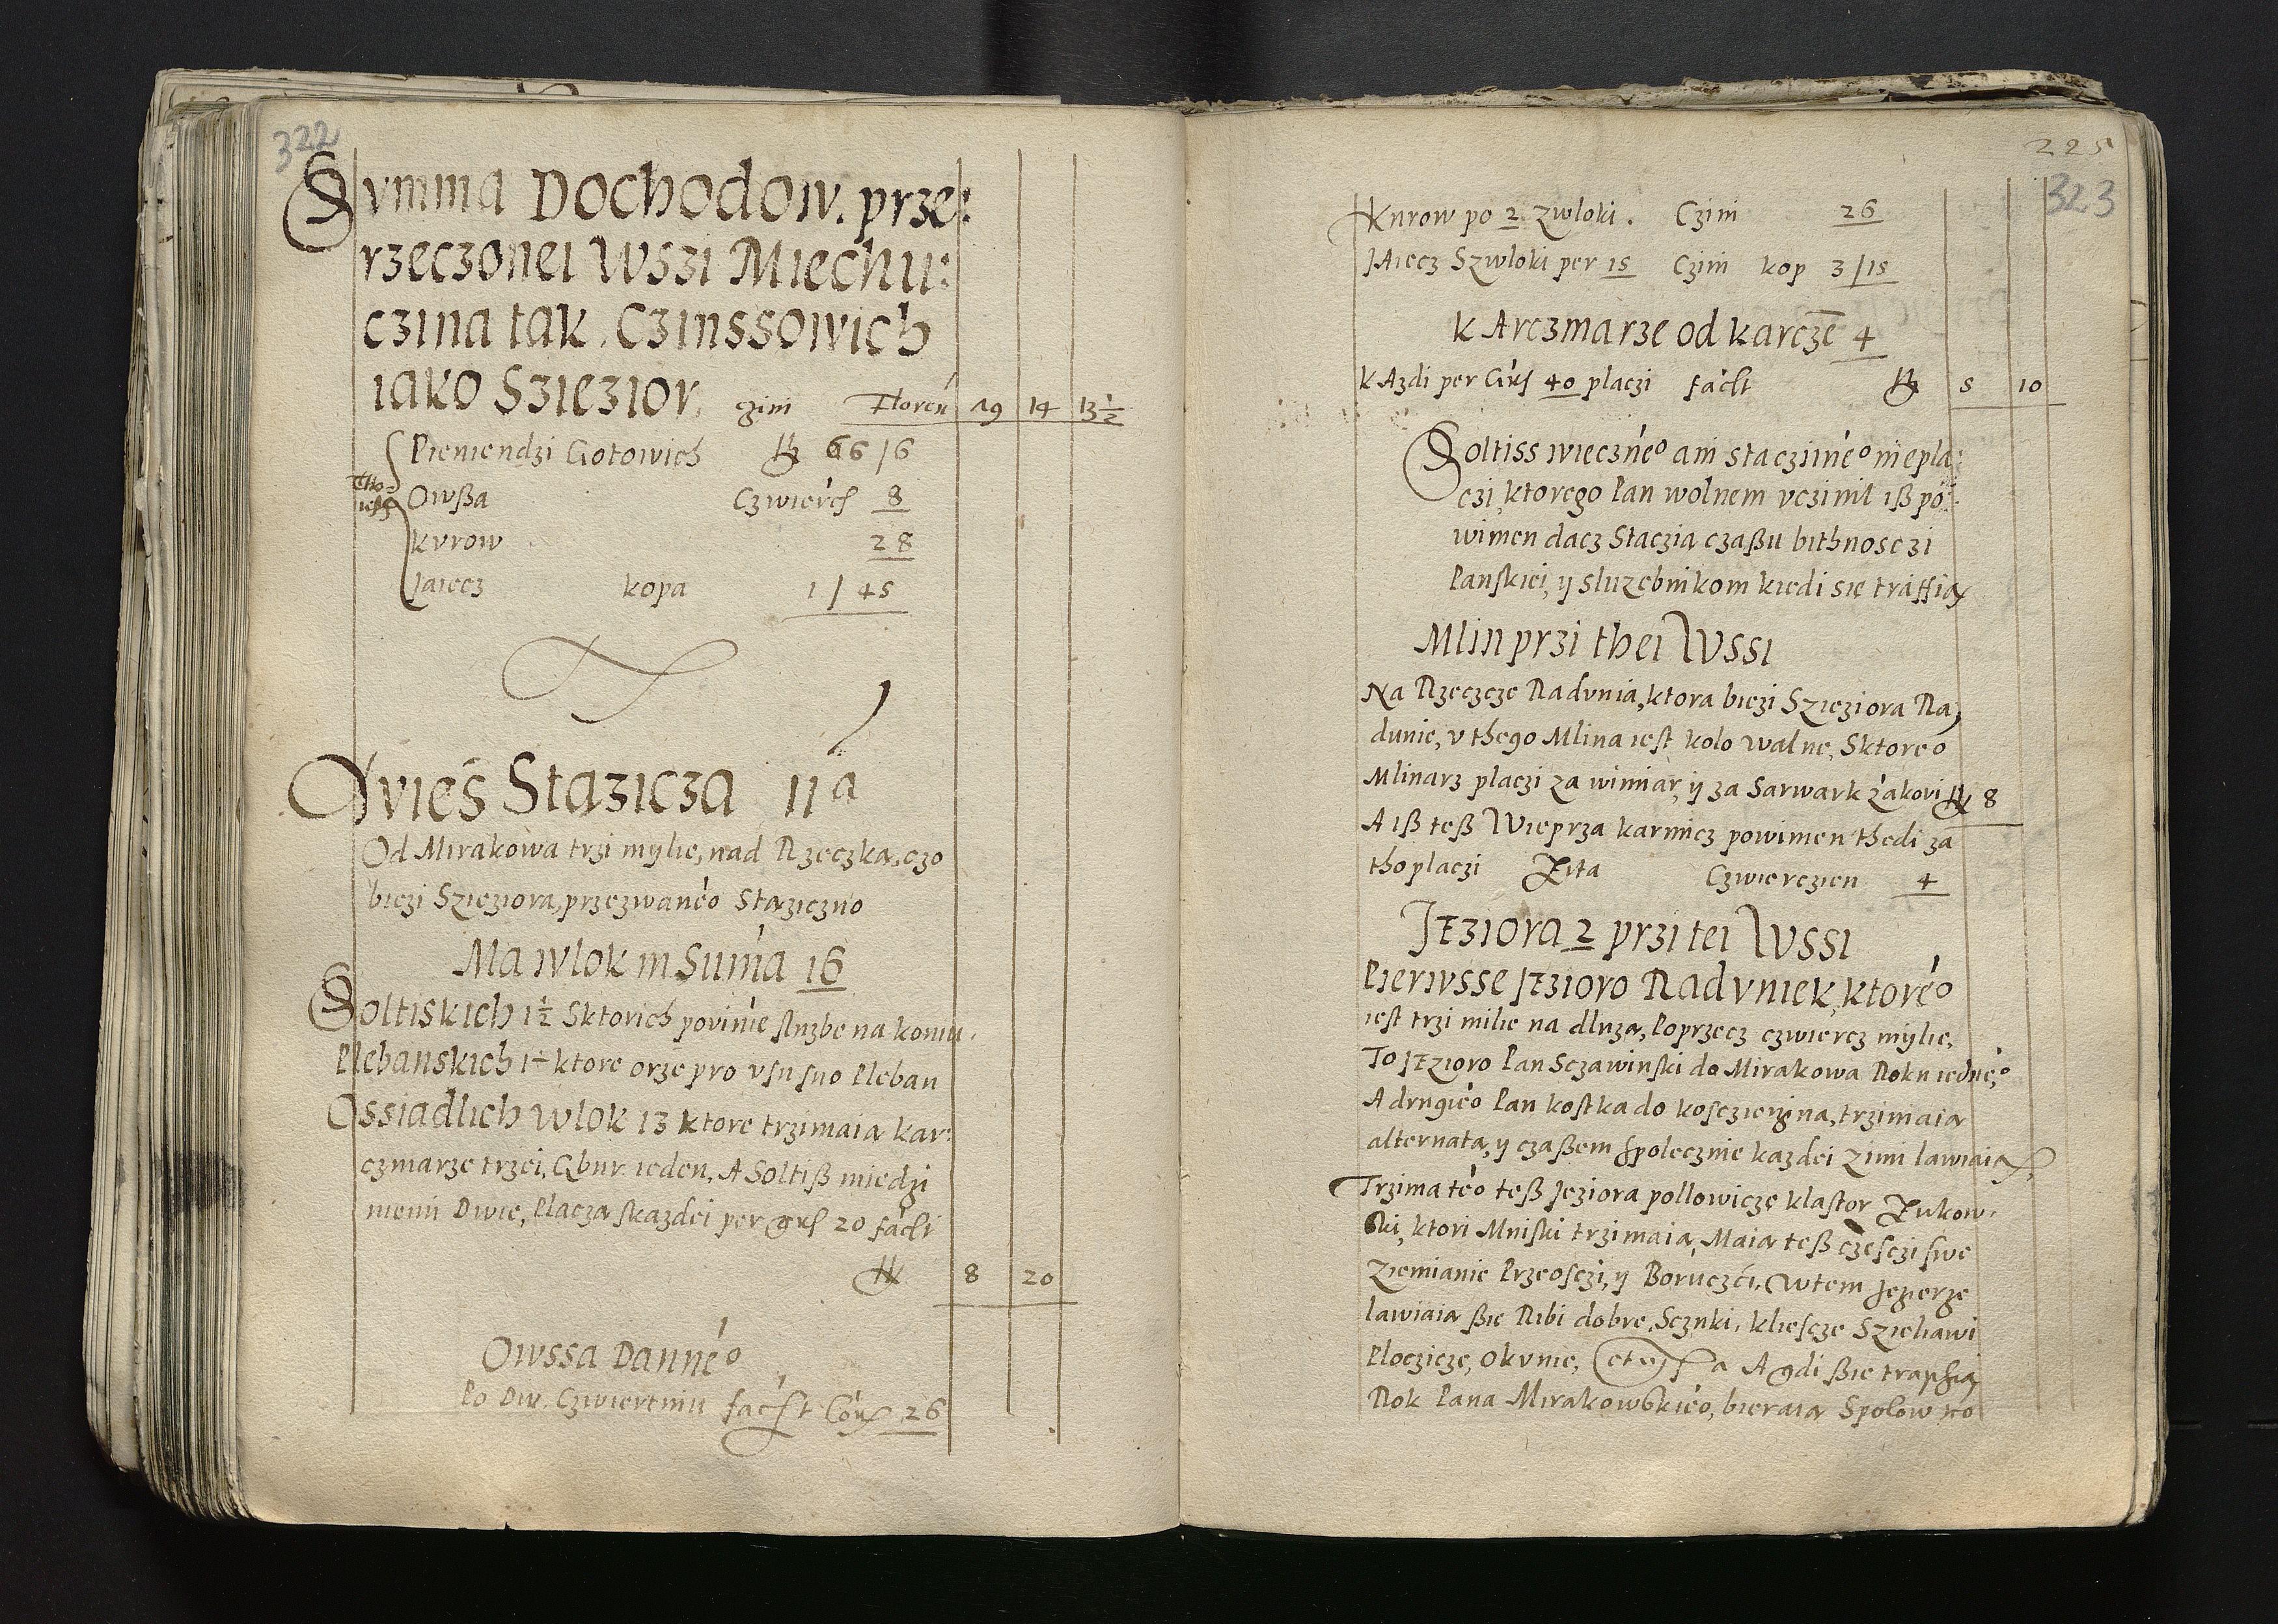 322
Summa Dochodow. prze:
rzeczonei Wszi Miechu:
czina tak, Czinssowich
iako Sziezior, czini Floren 49 14 13½
Pieniendzi Gotowich 66/6
Tho=
iest
Owßa Czwierch 8
kurow 28
Jaiecz kopa 1/45
Wies Stazicza 11a
Od Mirakowa trzi mylie, nad Rzeczka, czo
biezi Szieziora, przezwaneo Staziczno
Ma wlok in Suma 16
Soltiskich 1½ Sktorich povinie sluzbe na koniu.
Plebanskich 1½ ktore orze pro usu suo Pleban
Ossiadlich wlok 13 ktore trzimaia kar:
czmarze trzei, Gbur ieden, A Soltiß miedzi
niemi Dwie, Placza skazdei per grs 20 facst
8 20
Owssa Danneo
Po Dw. Czwiertniu facst Cor 26
225
323
Kurow po 2 zwloki. Czini 26
JAiecz Szwloki per 15 Czini kop 3/15
kArczmarze od karcze 4
kAzdi per Grs 40 placzi facst 5 10
Soltiss wieczneo ani stacziineo niepla:
czi, ktorego Pan wolnem uczinil iß po:
winien dacz Staczia czaßu bithnosczi
Panskiei, ÿ sluzebnikom kiedi sie traffia
Mlin przi thei Wssi
Na Rzeczcze Radunia, ktora biezi Szieziora Ra
dunie, u thego Mlina iest kolo walne, Sktoreo
Mlinarz placzi za wimiar, ÿ za Sarwark zakovi 8
A iß teß Wieprza karmicz powinien thedi za
tho placzi Zita Czwierczien 4
JEziora 2 przi tei Wssi
Pierwsse JEzioro Raduniek, ktoreo
iest trzi milie na dluza, Poprzecz czwiercz mylie,
To JEzioro Pan Sczawinski do Mirakowa Roku iedneo,
A drugieo Pan kostka do kosczierzina, trzimaia
alternata, ÿ czaßem spolecznie kazdei zimi lawiaia,
Trzima teo teß Jeziora pollowicze klastor Zukow.
ski, ktori Mniski trzimaia, Maia teß czesczi swe
Ziemianie Przeosczi, ÿ Boruczci. Wtem Jezierze
lawiaia ßie Ribi dobre, Scznki, kliescze Szieliawi
Ploczicze, Okunie, A gdi ßie traphia
Rok Pana Mirakowskieo, bieraia Spolowno